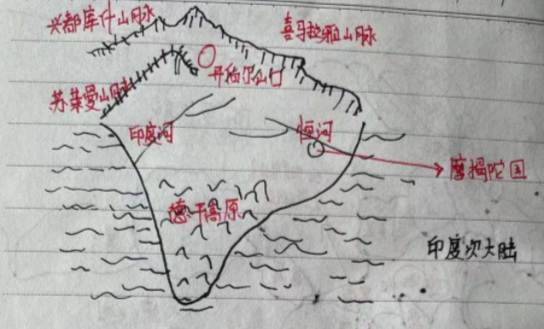 兴都库什山脉
喜马拉雅山脉
开伯尔山口
苏莱曼山脉
印度河
恒河
摩揭陀国
德干高原
印度次大陆